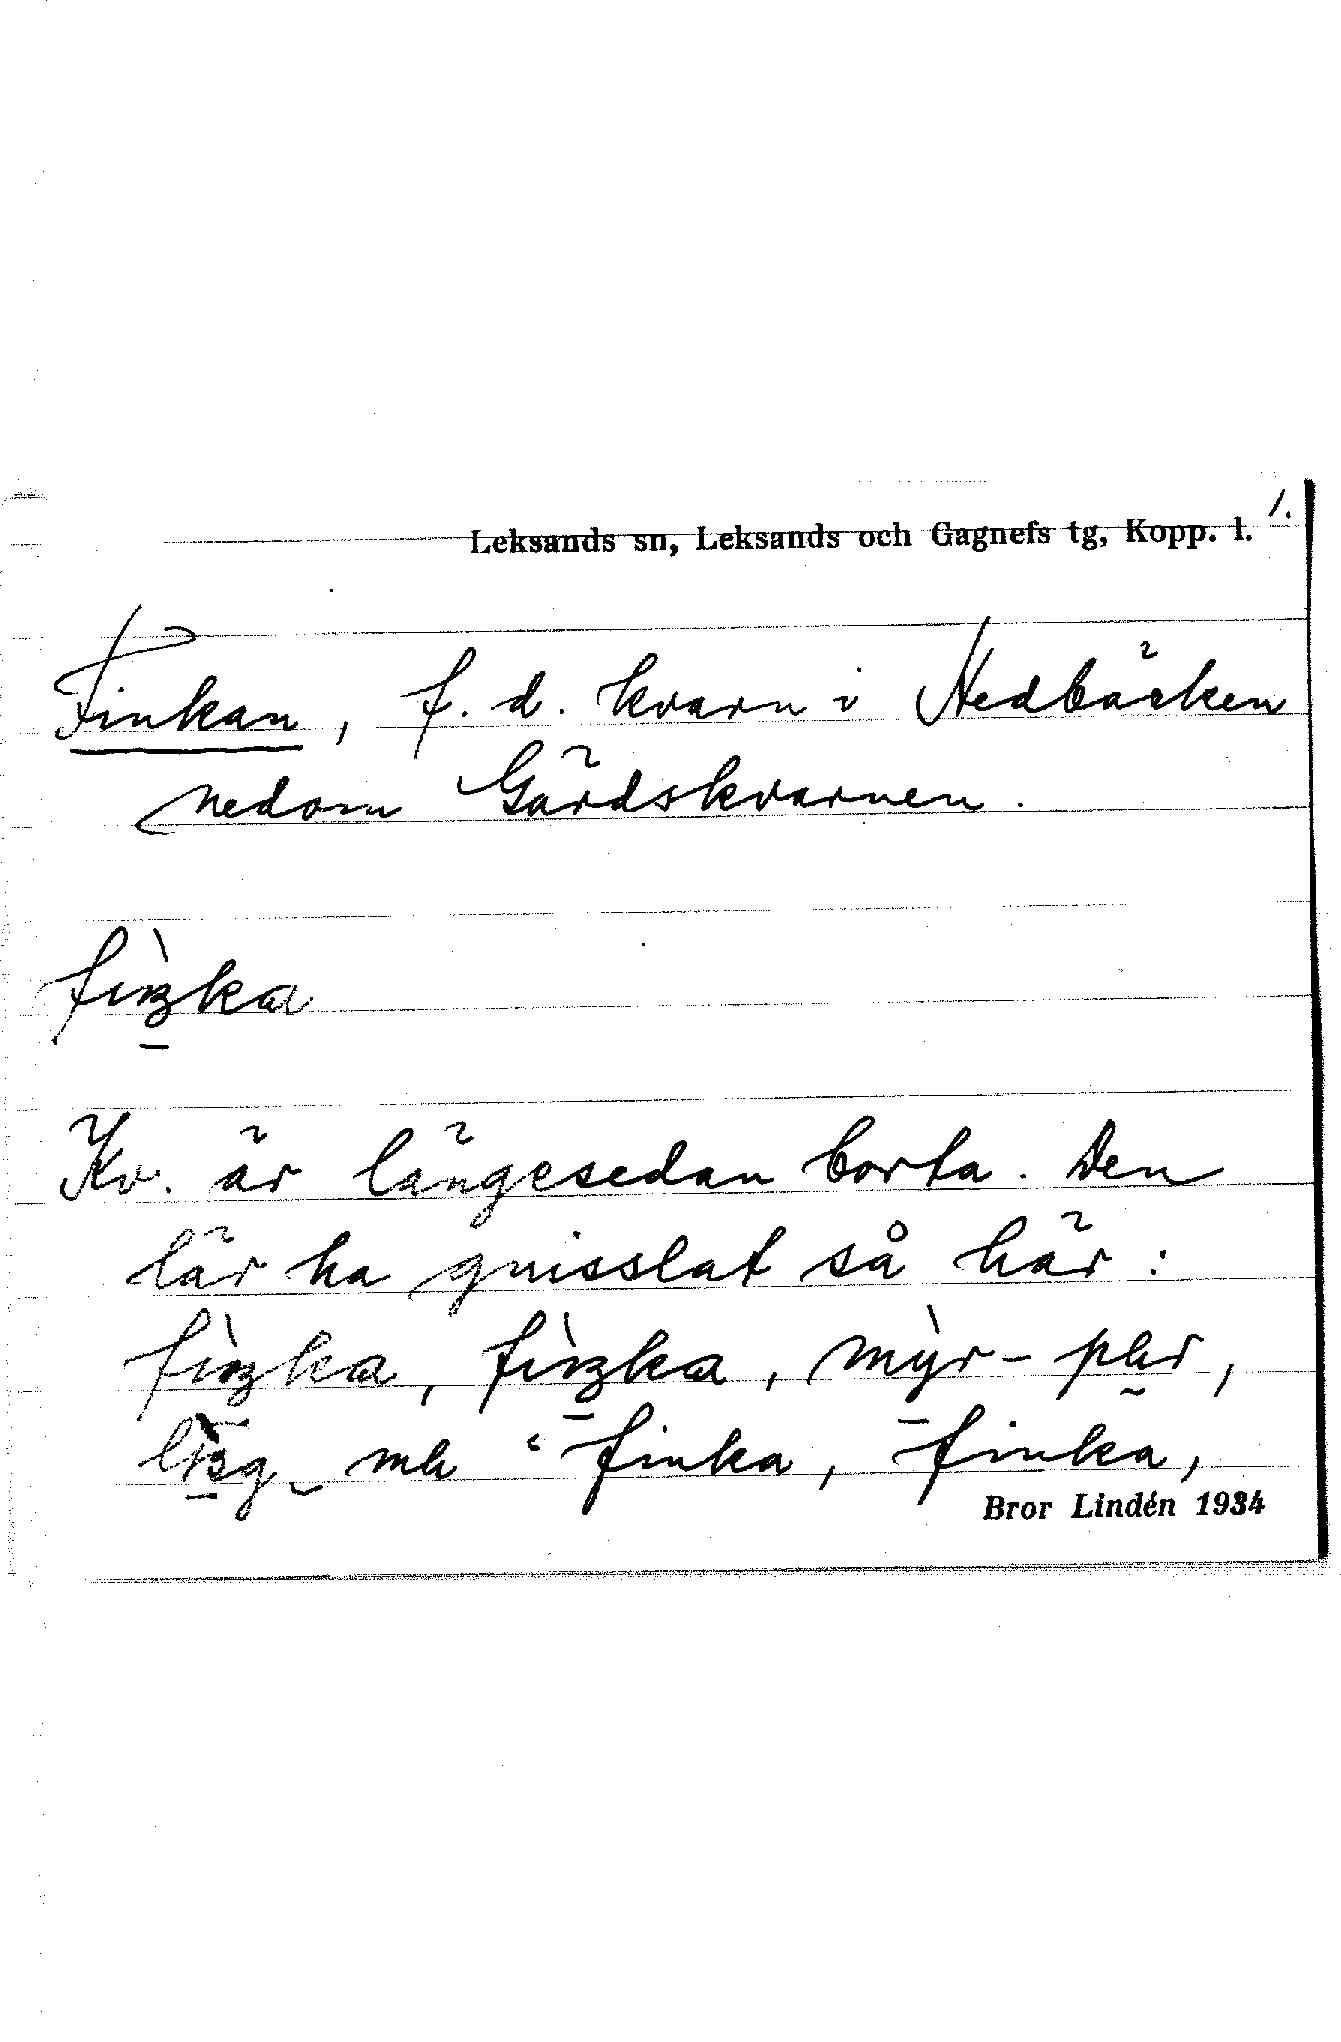 1.
Leksands sn, Leksands och Gagnefs tg, Kopp. l.
Finkan, f. d. kvarn i Nedbäcken
nedom Gärdskvarnen.
fìŋka
Kv. är längesedan borta. Den
lär ha gnisslat så här:
fìŋka, fìŋka, mỳr-
mk "finka, finka,
Bror Lindén 1934